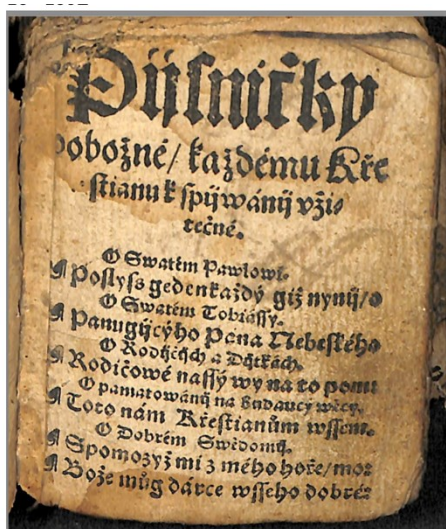 Pijsničky
pobožné / každému Kře
stianu k spijwánij vži=
tečné.
O Swatém Pawlowi.
Poslyss gedenkaždý giž nynij / o
O Swatém Tobiássy.
Panugijcýho Pána Nebeského
O Rodičých a Djtkách.
Rodičowé nassý wy na to pomì
O pamatowánij na Budaucý wěcy.
Toto nám Křestianům wssem.
O Dobrém Swědomij.
Spomozyž mi z mého hoře / moz
Bože můg dárce wsseho dobréz